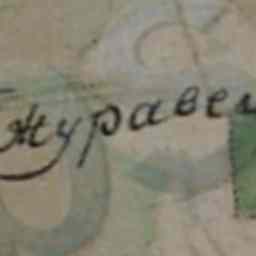 Журавел